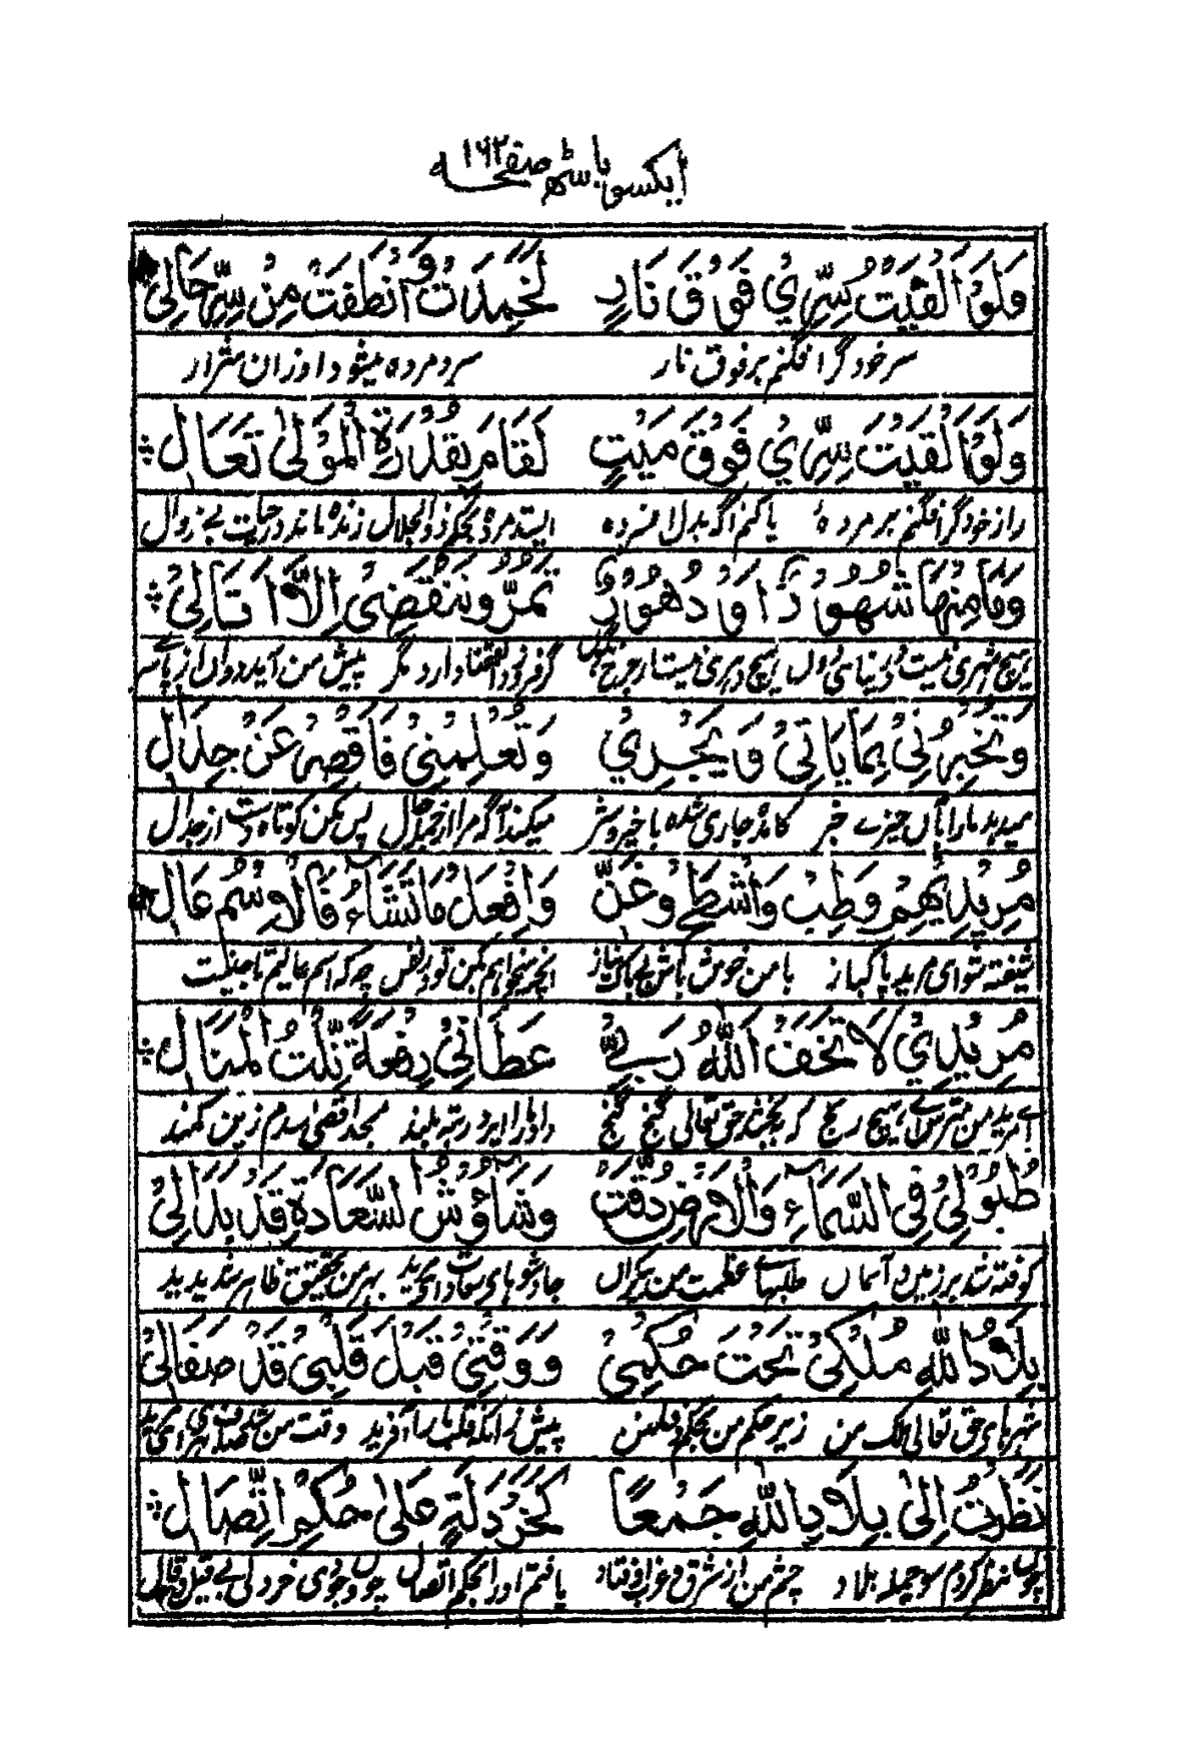 ایکسو باسٹھ صفحہ ۱۶۲
وَلَوْ اَلْقَيْتُ سِرِّيْ فَوْقَ نَارٍ لَخَمِدَتْ وَانْطَفَتْ مِنْ سِرِّ حَالِيْ
سر خود گر افگنم بر فوق نار سرد مرده میشود او زان شرار
وَلَوْ اَلْقَيْتُ سِرِّيْ فَوْقَ مَيْتٍ لَقَامَ بِقُدْرَةِ الْمَوْلٰى تَعَالٰ
راز خود گر افگنم بر مردهٔ یا کنم آگه بدل افسرده ایستد مرده بحکم ذوالجلال زنده ماند در حیات بے زوال
وَمَا مِنْهَا شُهُوْرٌ اَوْ دُهُوْرٌ تَمُرُّ وَتَنْقَضِيْ اِلَّا اَتَالِيْ
هیچ شهری نیست در دنیائی دون هیچ دهری نیست مگر پیش من آید دوان از پائے سر
وَتُخْبِرُنِيْ بِمَا يَاتِيْ وَيَجْرِيْ وَتُعْلِمُنِيْ فَاَقْصِرْ عَنْ جِدَالٖ
میدهد مارا بآں چیزے خبر کامد جاری شده با خیر و شر میکند آگه مرا از حال پس بکن کوتاه دست از جدال
مُرِيْدِيْ هِمْ وَطِبْ وَاشْطَحْ وَغَنِّ وَافْعَلْ مَا تَشَآءُ فَالْاِسْمُ عَالٖ
شیفته شو ای مرید پاکباز با من خوش باش بے باک نیاز آنچه میخواهم بکن تو در نفس چونکه اسم عالیم با
مُرِيْدِيْ لَا تَخَفْ اَللّٰهُ رَبِّيْ عَطَانِيْ رِفْعَةً نِلْتُ الْمَنَالٖ
اے مرید من مترس از هیچ رنج که بخشد حق تعالی گنج گنج داد مارا ایزد رتبه بلند
طُبُوْلِيْ فِي السَّمَآءِ وَالْاَرْضِ دُقَّتْ وَشَآؤُسُ السَّعَادَةِ قَدْ بَدَالِيْ
کوفته شد بر زمین و آسماں طبلهائے عظمت من بیکراں بهر من تحقیق ظاهر شد پدید
بِلَادُ اللهِ مُلْكِيْ تَحْتَ حُكْمِيْ وَوَقْتِيْ قَبْلَ قَلْبِيْ قَدْ صَفَالِيْ
شهرهای حق تعالی ملک من زیر حکم من پیش زانکه قلب ما را آفرید وقت من
نَظَرْتُ اِلٰى بِلَادِ اللهِ جَمْعًا كَخَرْدَلَةٍ عَلٰى حُكْمِ اتِّصَالٖ
چوں نظر کردم سوی جمله بلاد چشم من از شرق و غرب افتاد یافتم او را بحکم اتصال چوں وجودی خردلی بے قیل و قال